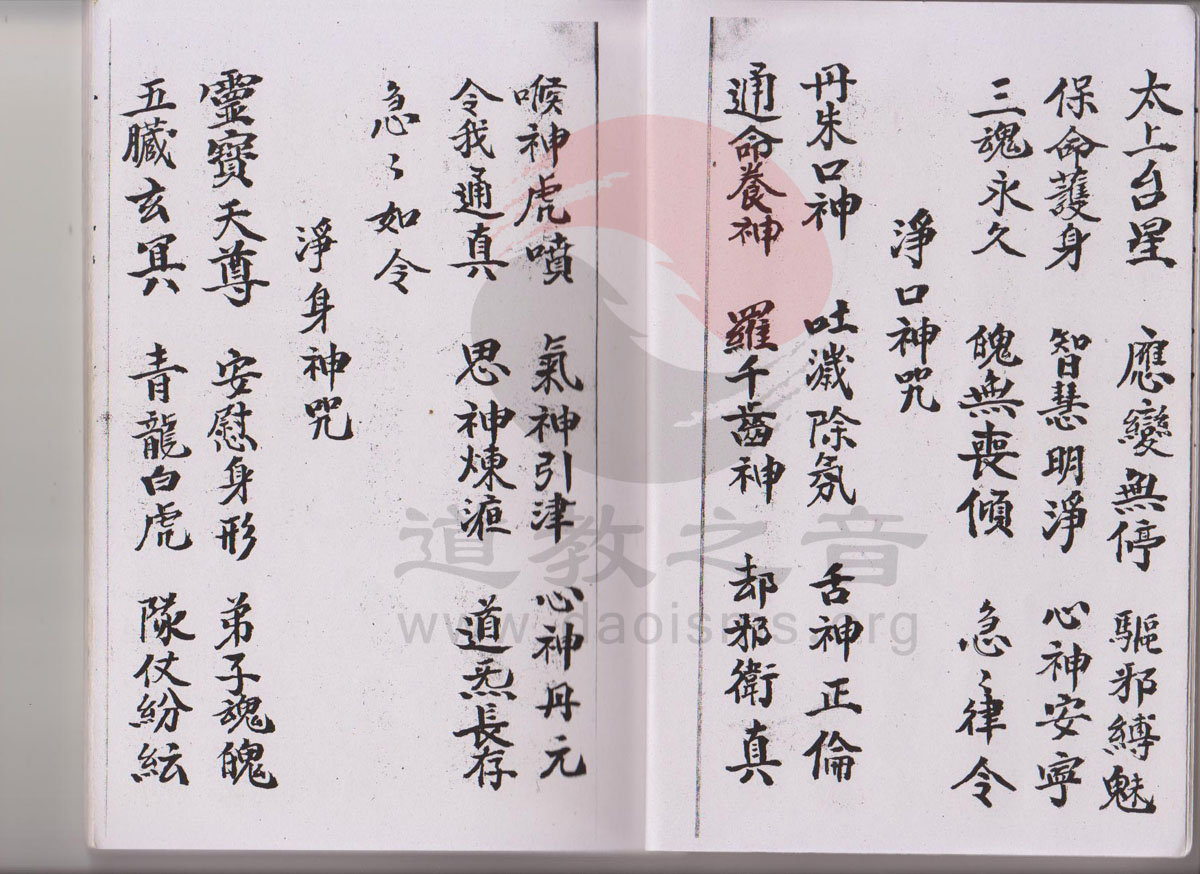 太上台星 應變無停 驅邪縛魅
保命護身 智慧明淨 心神安寧
三魂永久 魄無喪傾 急〻律令
淨口神咒
丹朱口神 吐濊除氛 舌神正倫
通命養神 羅千齒神 却邪衛真
喉神虎噴 氣神引津 心神丹元
令我通真 思神煉液 道炁長存
急〻如令
淨身神咒
靈寶天尊 安慰身形 弟子魂魄
五臟玄冥 青龍白虎 隊仗紛紜
道教之音
www.daoisms.org